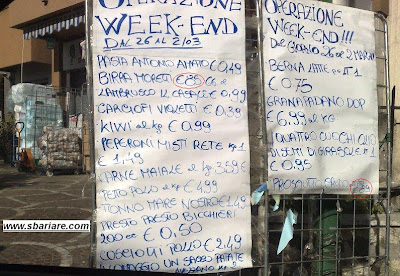 OPERAZIONE
WEEK-END
DAL 26 AL 2/03
PASTA ANTONIO AMATO € 0,49
BIRRA MORETI € 0,85
LAMBRUSCO IL CASALE € 0,99
CARCIOFI VIOLETTI € 0,39
KIWI al kg € 0.99
PEPERONI MISTI RETE kg 1
€ 1,49
CARNE MAIALE al kg 3,59 €
PETTO POLLO al kg € 4,99
TONNO MARE NOSTRO € 1,49
PRESTO PRESTO BICCHIERI
200 cc € 0,50
POLLO € 2,49
OMAGGIO UN SACCO PATATE
www.sbariare.com
OPERAZIONE
WEEK-END!!!
DAL GIORNO 26 al 2 MARZO
BERNA LATTE 1
€ 0,75
GRANA PADANO DOP
€ 6,99 al KG
QUATTRO CUOCHI OLIO
DI SEMI DI GIRASOLE 1
€ 0,95
PROSCIUTTO